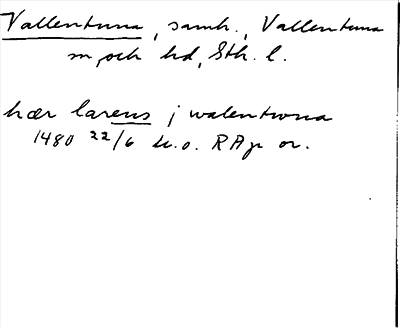 Vallentuna, samh., Vallentuna
sn och hd, Sth. l.
hær larens j walentwna
1480 22/6 u.o. RAp or.